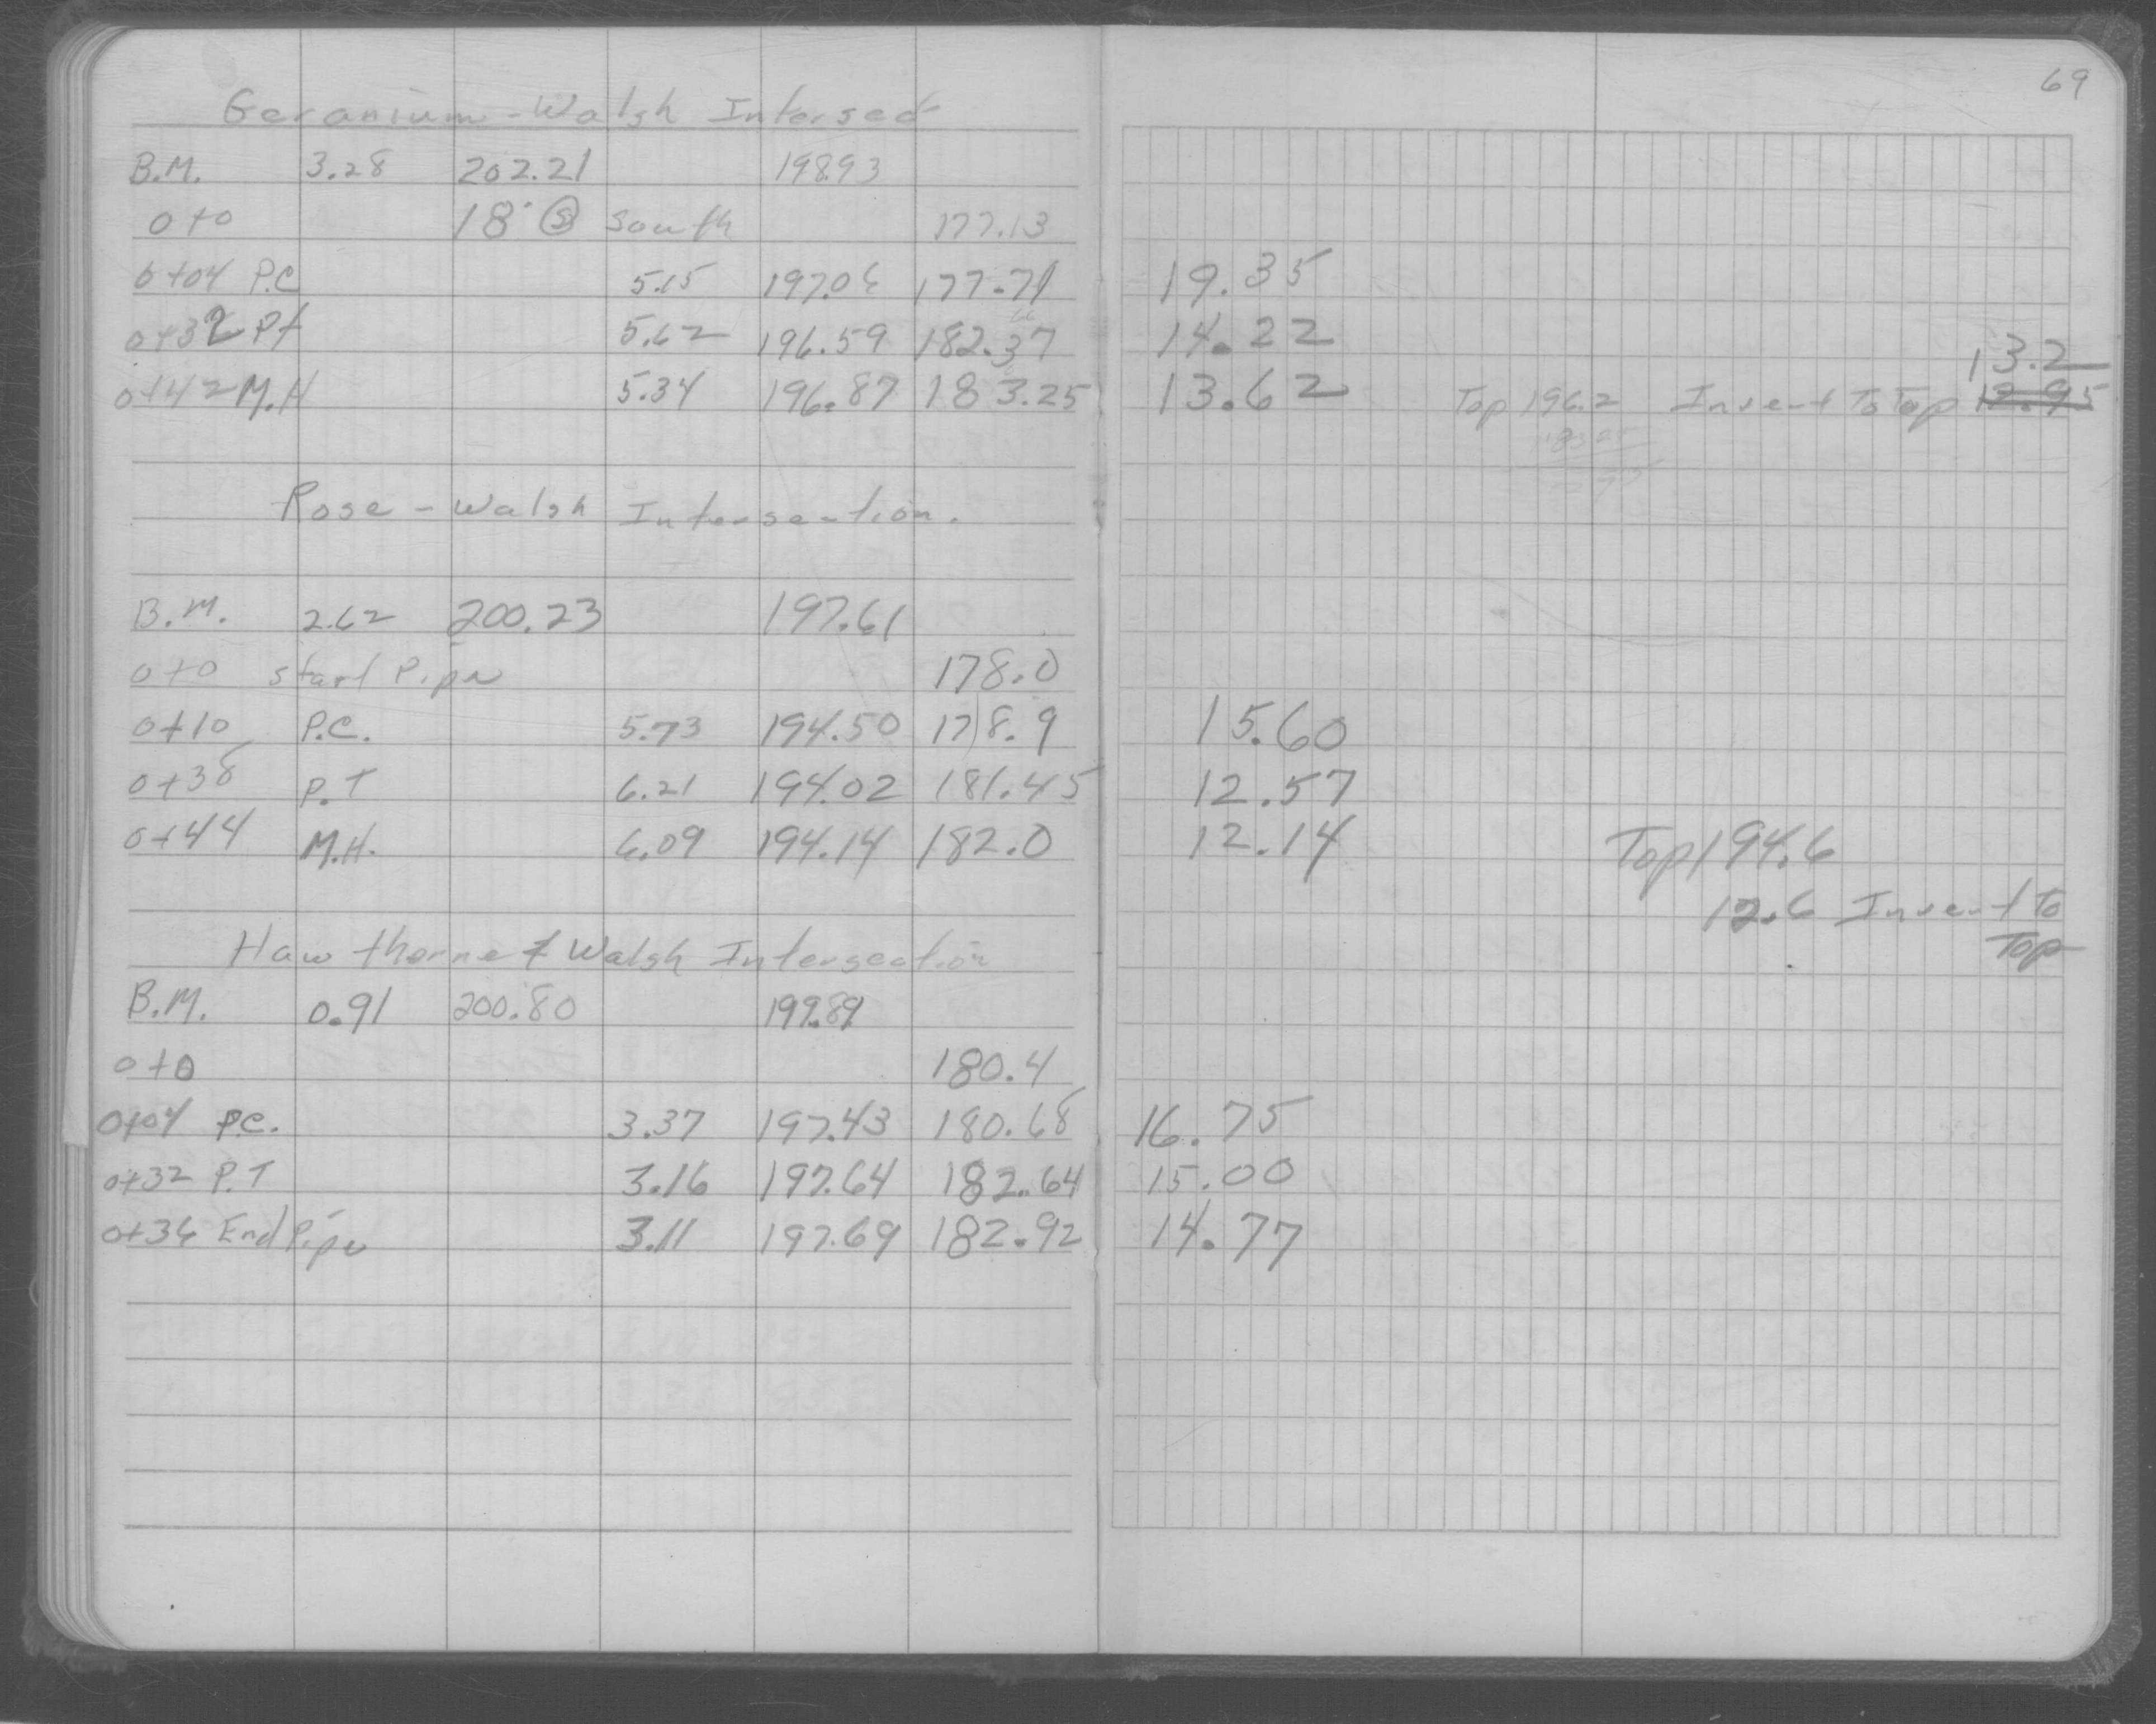 69
Geranium - Walsh Intersect
B.M. 3.28 202.21 198.93
0+0 18" Ⓢ South 177.13
0+04 P.C 5.15 197.06 177.71 19.35
0+32 Pt 5.62 196.59 182.37 14.22
13.2
0+42 M.H 5.34 196.87 183.25 13.62 Top 196.2 Invert To Top 12.95
Rose - Walsh Intersection.
B.M. 2.62 200.23 197.61
0+0 start Pipe 178.0
0+10 P.C. 5.73 194.50 178.9 15.60
0+38 P.T 6.21 194.02 181.45 12.57
0+44 M.H. 6.09 194.14 182.0 12.14 Top 194.6
12.6 Invert To
Top
Hawthorne & Walsh Intersection
B.M. 0.91 200.80 199.89
0+0 180.4
0+04 P.C. 3.37 197.43 180.68 16.75
0+32 P.T 3.16 197.64 182.64 15.00
0+36 End Pipe 3.11 197.69 182.92 14.77